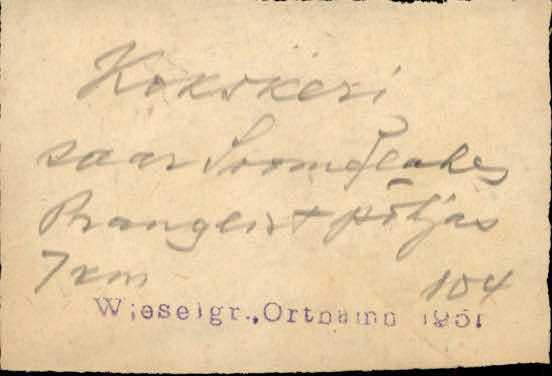 Kokskeri
saar Soome lahes
Pranglist põhjas
7 km 104
Wieselgr., Ortnamn 1951